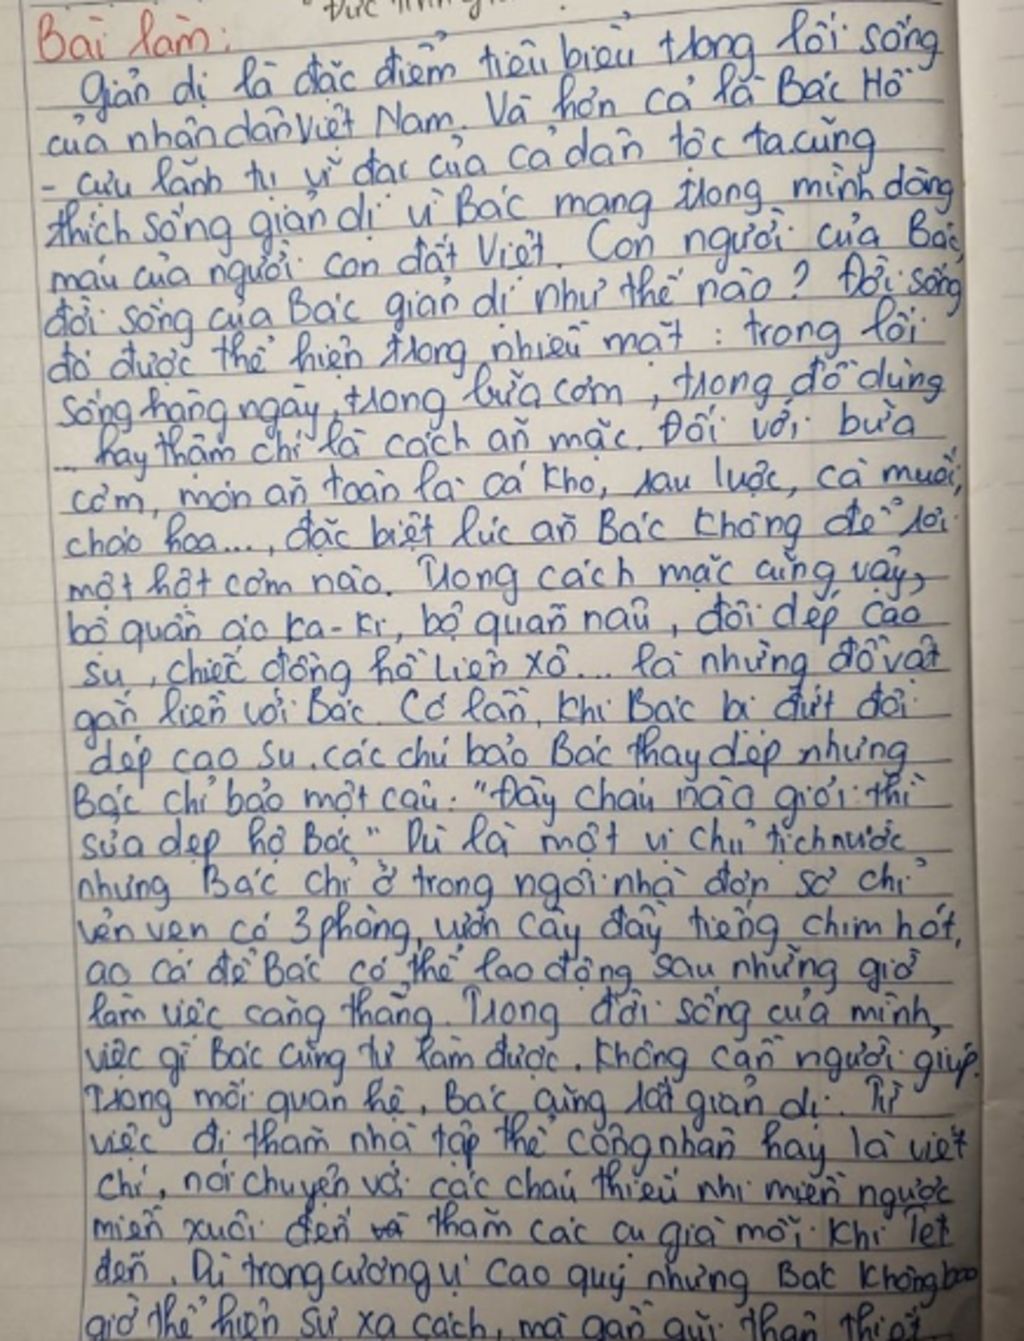 Đức tính
Bài làm:
Giản dị là đặc điểm tiêu biểu trong lối sống
của nhân dân Việt Nam. Và hơn cả là Bác Hồ
- cựu lãnh tụ vĩ đại của cả dân tộc ta cũng
thích sống giản dị vì Bác mang trong mình dòng
máu của người con đất Việt. Con người của Bác,
đời sống của Bác giản dị như thế nào? Đời sống
đó được thể hiện trong nhiều mặt: trong lối
sống hằng ngày, trong bữa cơm, trong đồ dùng
... hay thậm chí là cách ăn mặc. Đối với bữa
cơm, món ăn toàn là cá kho, rau luộc, cà muối,
cháo hoa..., đặc biệt lúc ăn Bác không để rơi
một hột cơm nào. Trong cách mặc cũng vậy,
bộ quần áo ka-ki, bộ quần nâu, đôi dép cao
su, chiếc đồng hồ Liên Xô... là những đồ vật
gắn liền với Bác. Có lần, khi Bác bị đứt đôi
dép cao su, các chú bảo Bác thay dép nhưng
Bác chỉ bảo một câu: "Đây cháu nào giỏi thì
sửa dép hộ Bác" Dù là một vị chủ tịch nước
nhưng Bác chỉ ở trong ngôi nhà đơn sơ chỉ
vẻn vẹn có 3 phòng, vườn cây đầy tiếng chim hót,
ao cá để Bác có thể lao động sau những giờ
làm việc căng thẳng. Trong đời sống của mình,
việc gì Bác cũng tự làm được, không cần người giúp.
Trong mối quan hệ, Bác cũng rất giản dị. Từ
việc đi thăm nhà tập thể công nhân hay là viết
chí, nói chuyện với các cháu thiếu nhi miền ngược
miền xuôi đến thăm các cụ già mỗi khi Tết
đến. Dù trong cương vị cao quý nhưng Bác không bao
giờ thể hiện sự xa cách, mà gần gũi thân thiết